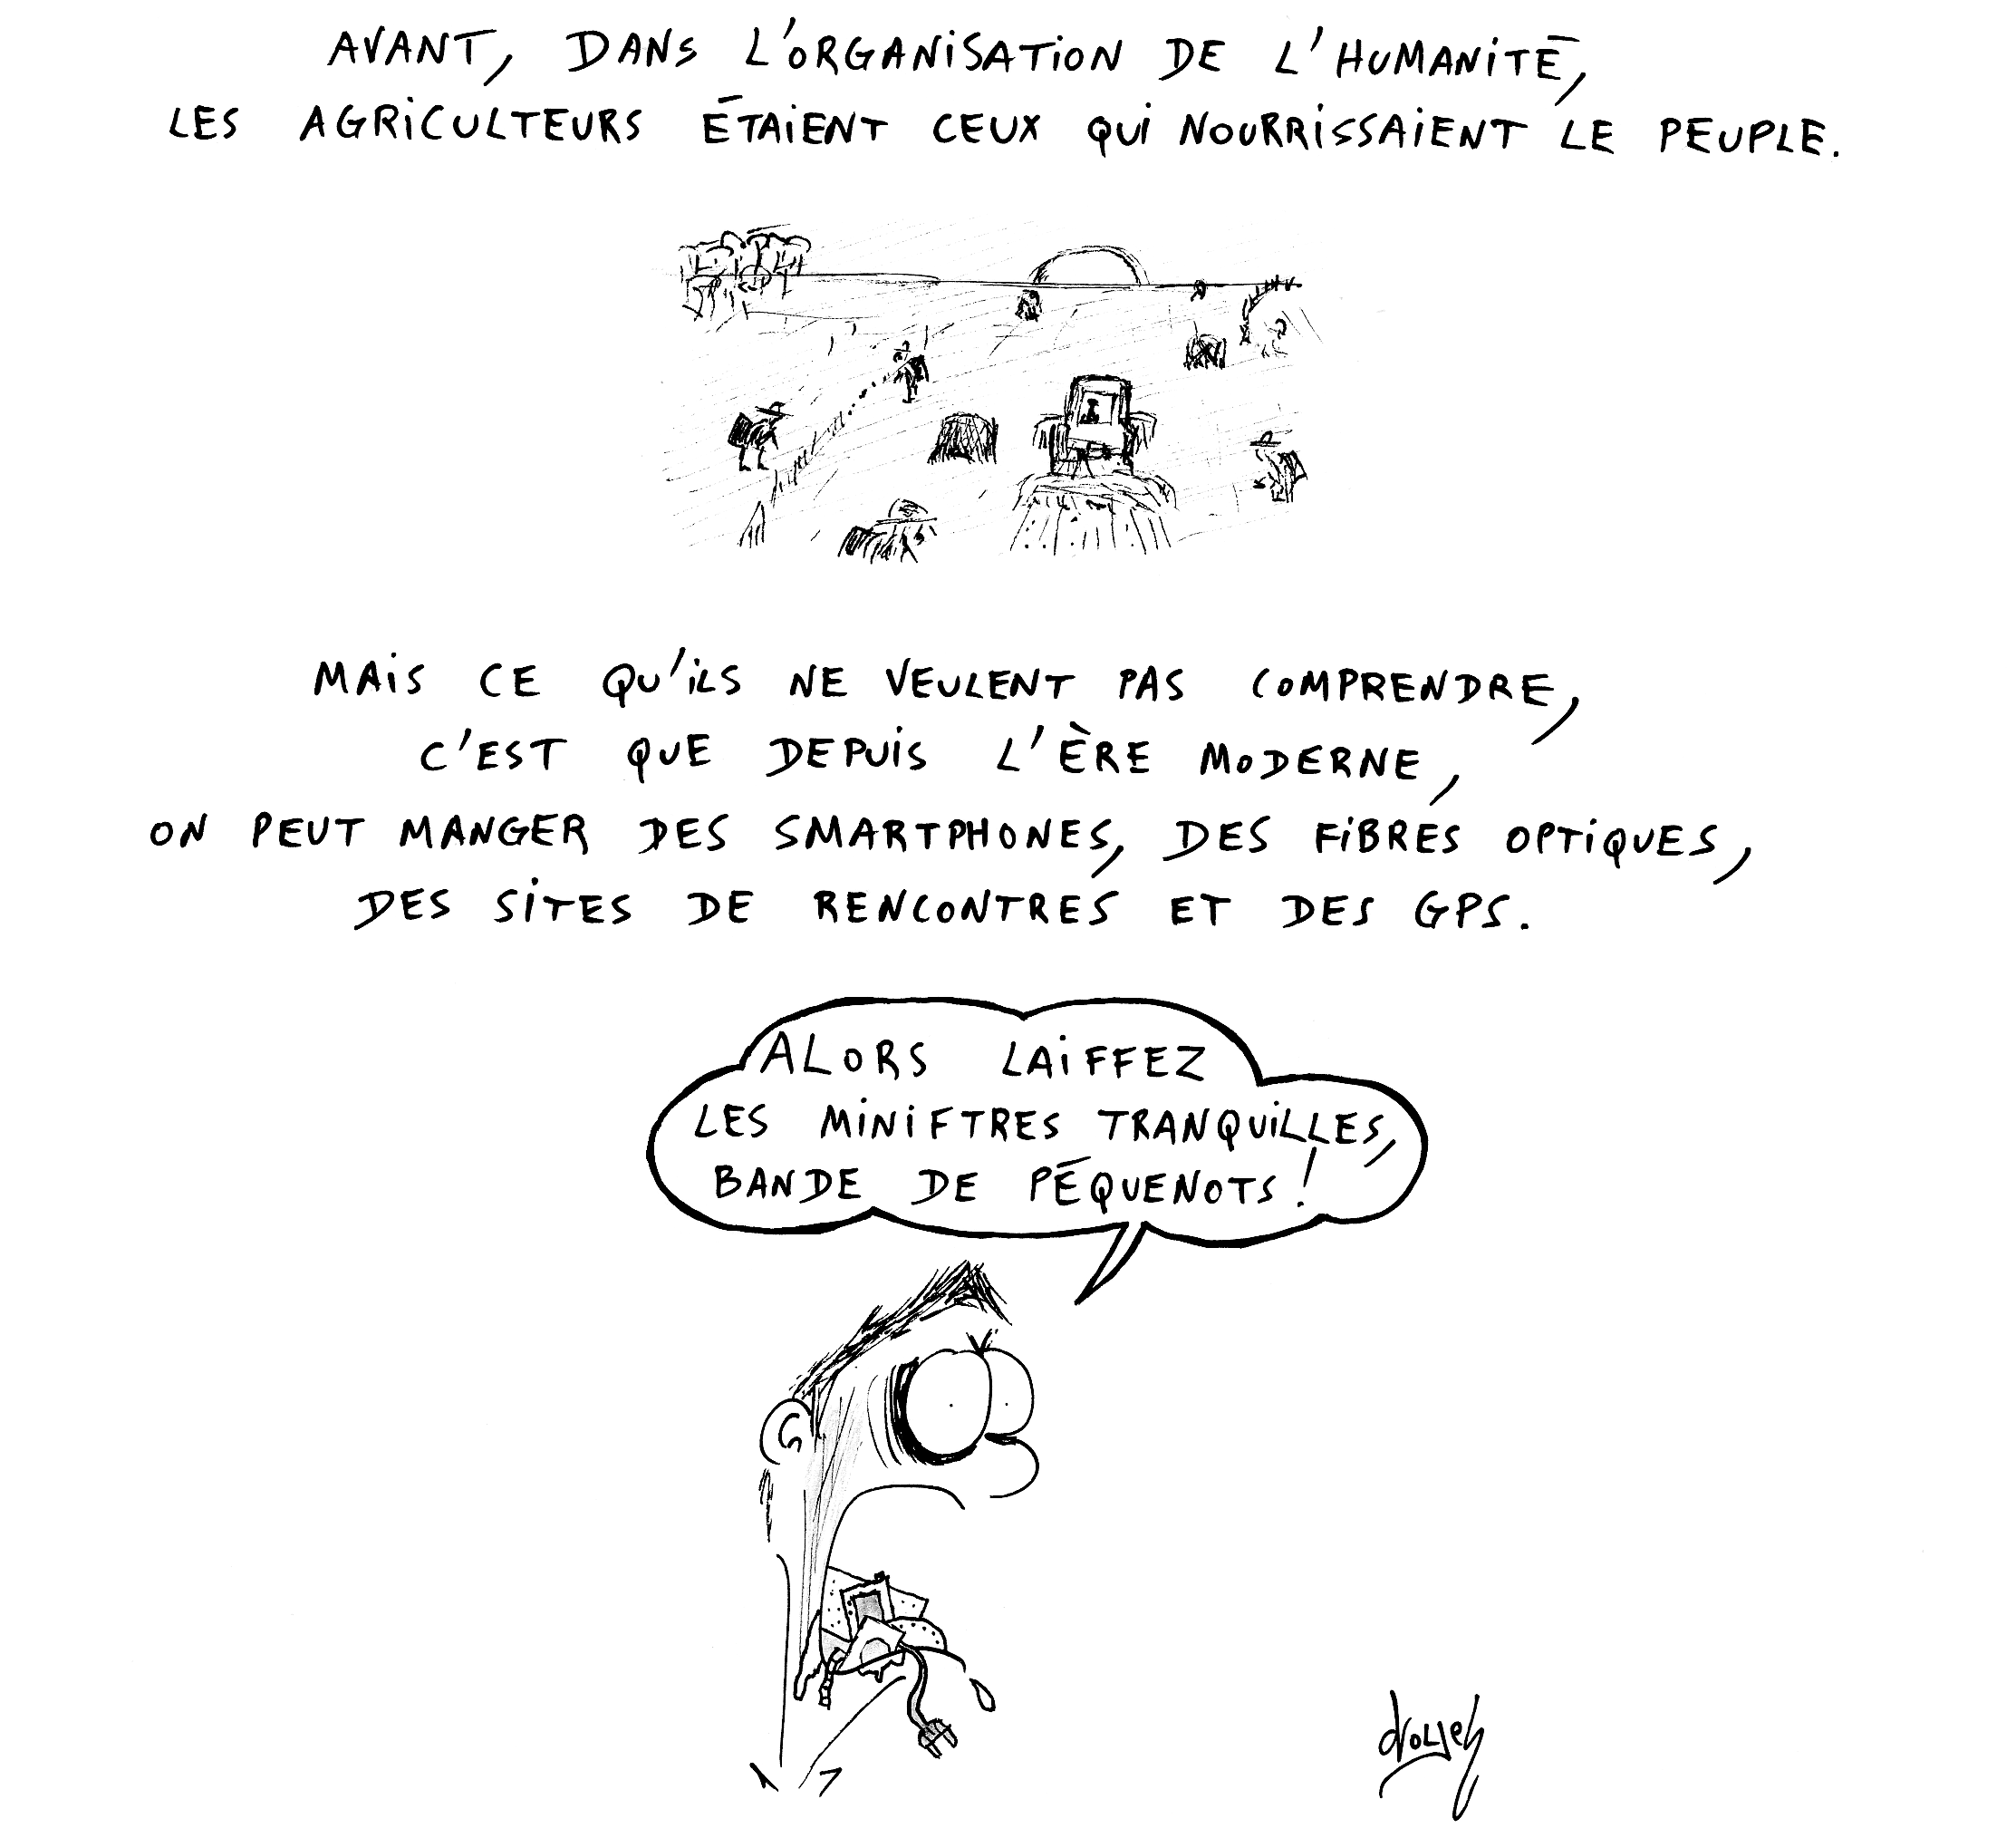 AVANT, DANS L'ORGANISATION DE L'HUMANITÉ,
LES AGRICULTEURS ÉTAIENT CEUX QUI NOURRISSAIENT LE PEUPLE.
MAIS CE QU'ILS NE VEULENT PAS COMPRENDRE,
C'EST QUE DEPUIS L'ÈRE MODERNE,
ON PEUT MANGER DES SMARTPHONES, DES FIBRES OPTIQUES,
DES SITES DE RENCONTRES ET DES GPS.
ALORS LAIFFEZ
LES MINIFTRES TRANQUILLES,
BANDE DE PÉQUENOTS !